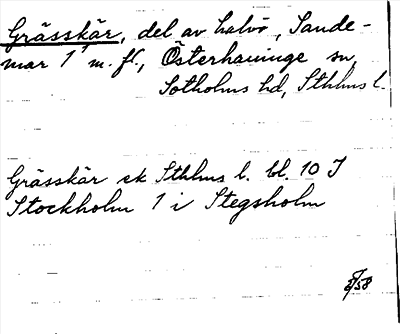 Grässkär, del av halvö, Sande-
mar 1 m. fl., Österhaninge sn,
Sotholms hd, Sthlms l.
Grässkär ek Sthlms l. bl. 10 J
Stockholm 1 i Stegsholm
/58